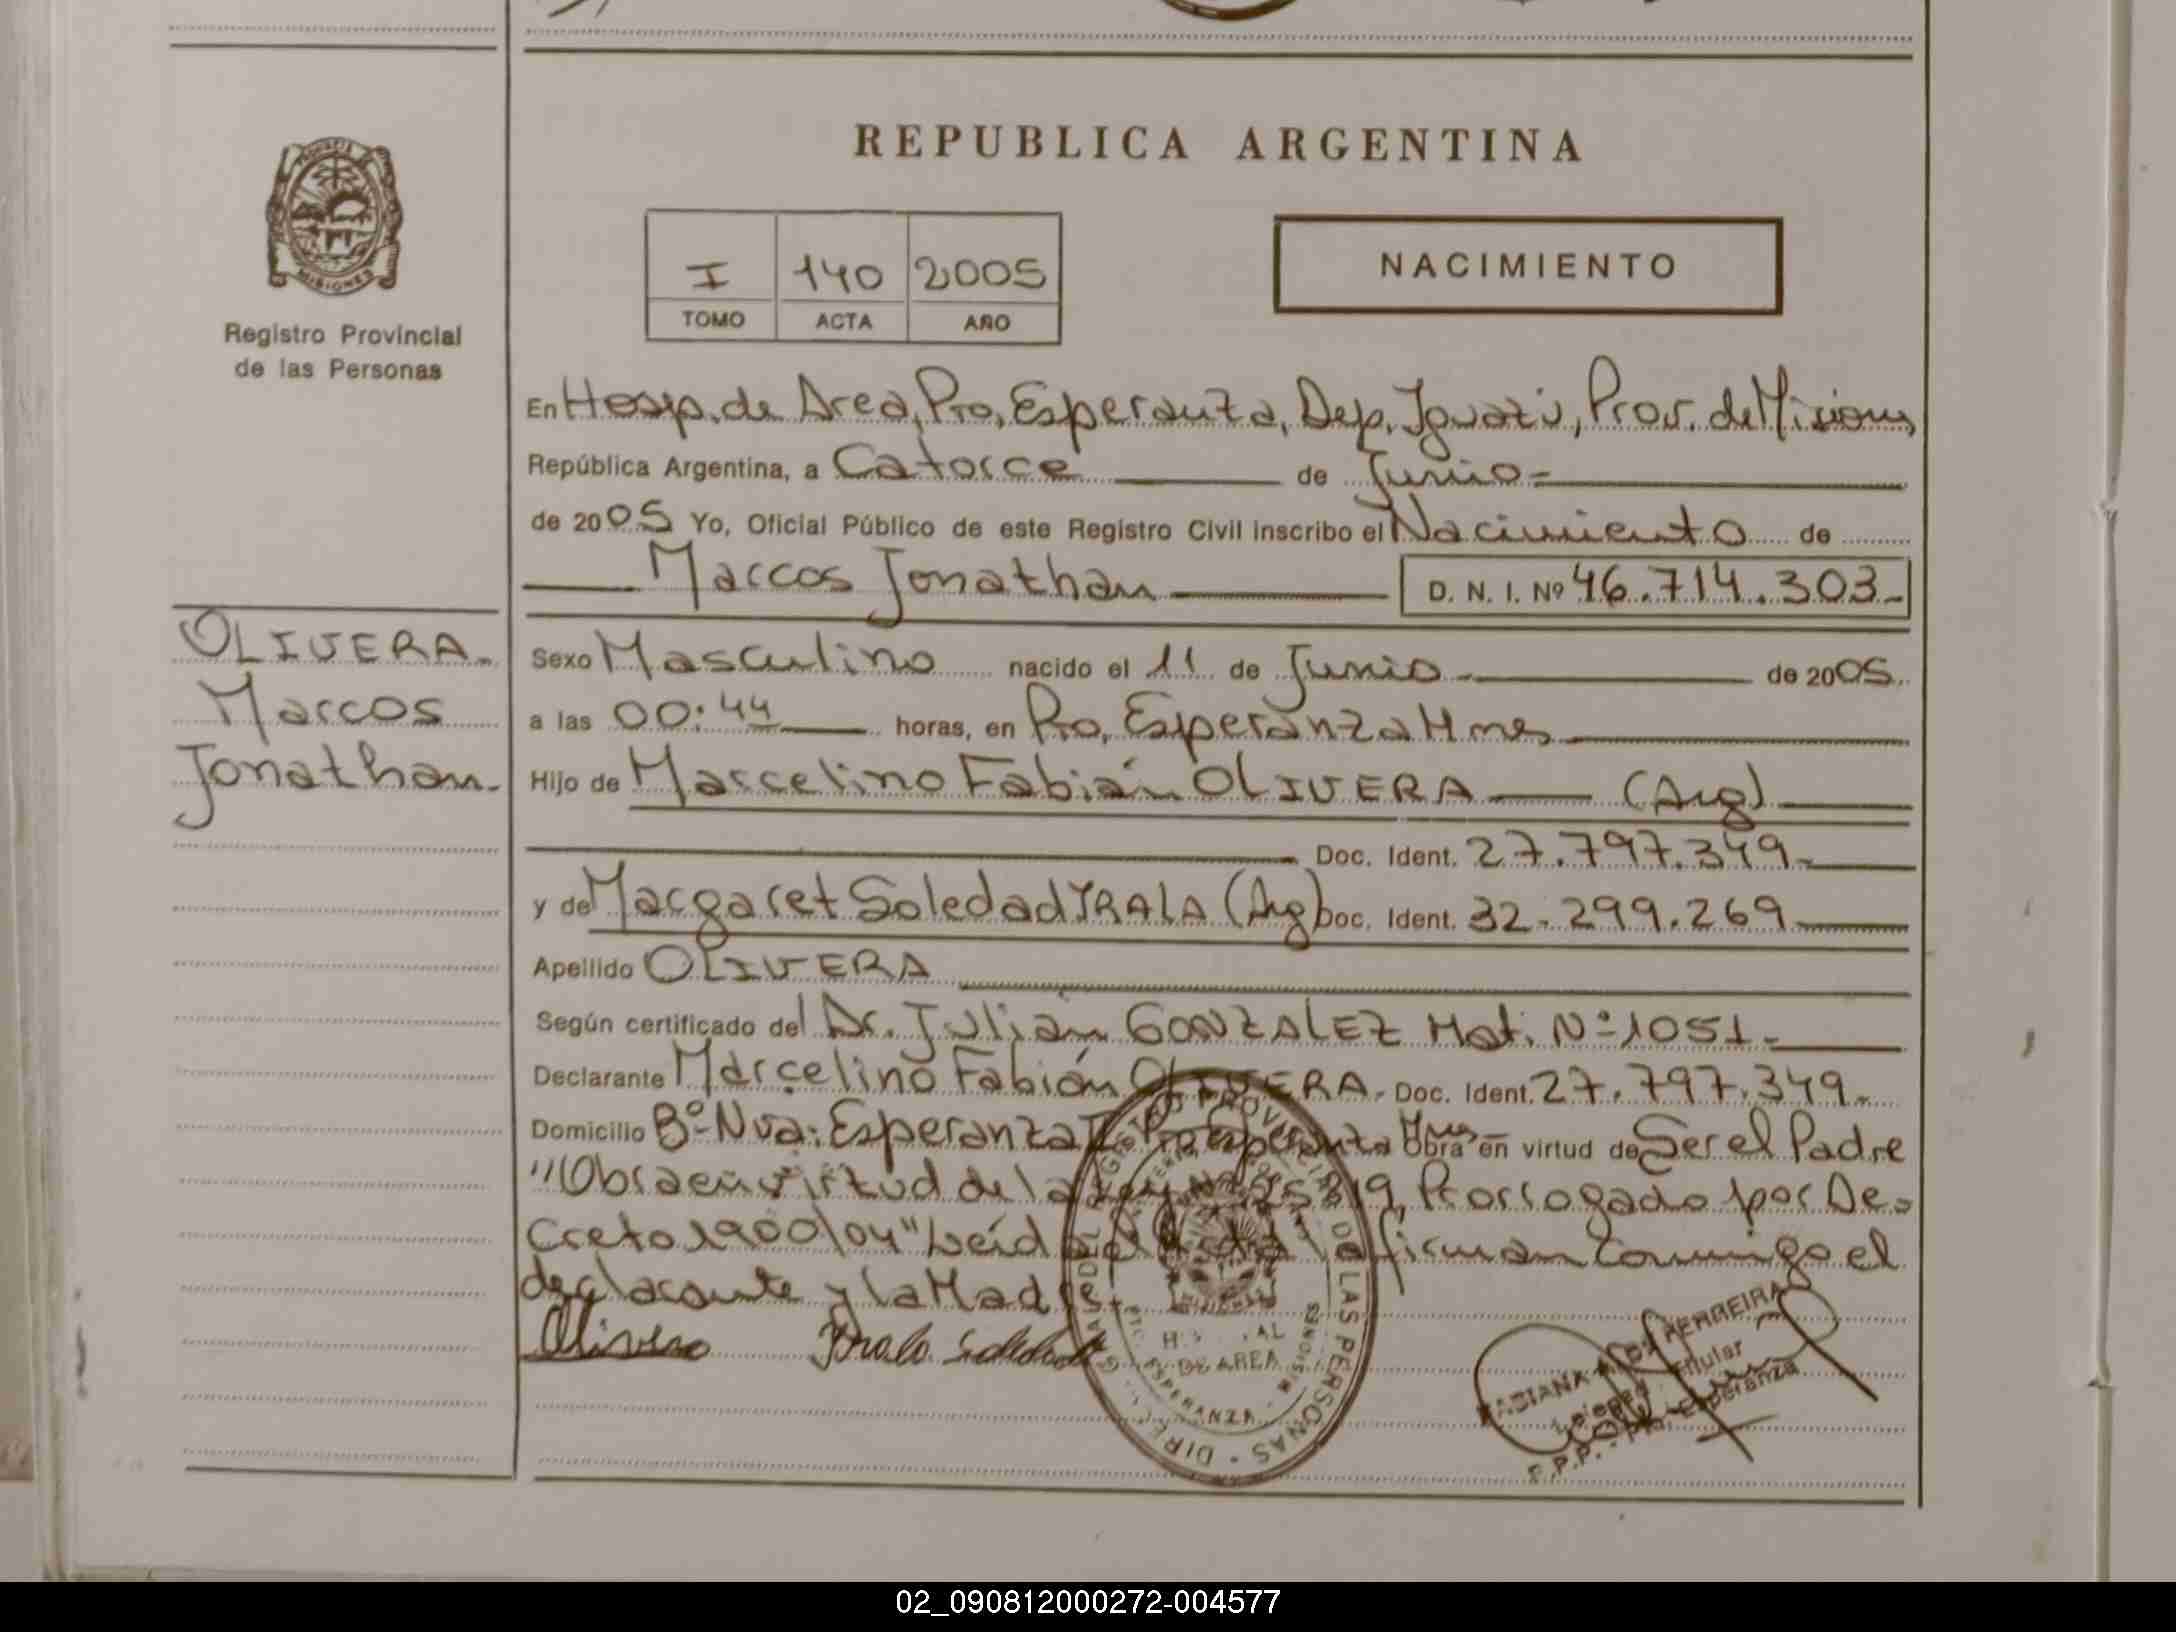 REPUBLICA ARGENTINA
PROVINCIA DE
MISIONES
Registro Provincial
de las Personas
I 140 2005
TOMO ACTA AÑO
NACIMIENTO
En Hosp. de Area, Pto. Esperanza, Dep. Iguazú, Prov. de Misiones
República Argentina, a Catorce de Junio
de 2005 Yo, Oficial Público de este Registro Civil inscribo el Nacimiento de
Marcos Jonathan D. N. I. Nº 46.714.303
OLIVERA
Marcos
Jonathan
Sexo Masculino nacido el 11 de Junio de 2005
a las 00:44 horas, en Pto. Esperanza Mnes
Hijo de Marcelino Fabián OLIVERA (Arg)
Doc. Ident. 27.797.349
y de Margaret Soledad IRALA (Arg) Doc. Ident. 32.299.269
Apellido OLIVERA
Según certificado del Dr. Julián GONZALEZ Mat. Nº 1051
Declarante Marcelino Fabián OLIVERA. Doc. Ident. 27.797.349
Domicilio Bº Nva. Esperanza Pto Esperanza Mnes Obra en virtud de Ser el Padre
"Obra en virtud de la Ley Nº 25.819, Prorrogado por De-
creto 1900/04" Leída el Acta la firman conmigo el
declarante y la Madre
Olivera Irala Soledad
DIRECCION GRAL. DEL REGISTRO PROVINCIAL DE LAS PERSONAS
DE AREA
ESPERANZA - MISIONES
FERREIRA
Titular
Pto. Esperanza
02_090812000272-004577